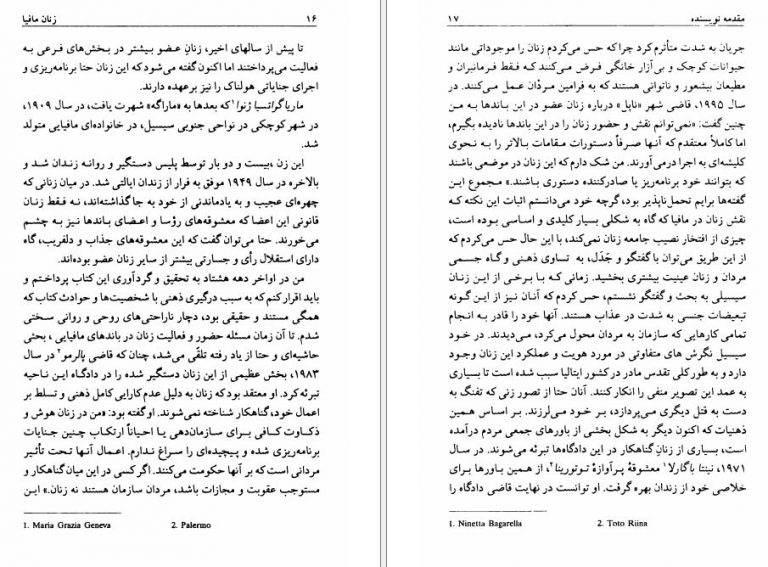 ۱۶ زنان مافیا
تا پیش از سالهای اخیر، زنانِ عضو بیشتر در بخش‌های فرعی به
فعالیت می‌پرداختند اما اکنون گفته می‌شود که این زنان حتا برنامه‌ریزی و
اجرای جنایاتی هولناک را نیز برعهده دارند.
ماریاگراتسیا ژنوا۱ که بعدها به «ماراگه» شهرت یافت، در سال ۱۹۰۹،
در شهر کوچکی در نواحی جنوبی سیسیل، در خانواده‌ای مافیایی متولد
شد.
این زن، بیست و دو بار توسط پلیس دستگیر و روانه زندان شد و
بالاخره در سال ۱۹۴۹ موفق به فرار از زندان ایالتی شد. در میان زنانی که
چهره‌ای عجیب و به یادماندنی از خود به جا گذاشته‌اند، نه فقط زنان
قانونی این اعضا که معشوقه‌های رؤسا و اعضای باندها نیز به چشم
می‌خورند. حتا می‌توان گفت که این معشوقه‌های جذاب و دلفریب، گاه
دارای استقلال رأی و جسارتی بیشتر از سایر زنان عضو بوده‌اند.
من در اواخر دهه هشتاد به تحقیق و گردآوری این کتاب پرداختم و
باید اقرار کنم که به سبب درگیری ذهنی با شخصیت‌ها و حوادث کتاب که
همگی مستند و حقیقی بود، دچار ناراحتی‌های روحی و روانی سختی
شدم. تا آن زمان مسئله حضور و فعالیت زنان در باندهای مافیایی، بحثی
حاشیه‌ای و حتا از یاد رفته تلقّی می‌شد، چنان که قاضی پالرمو۲ در سال
۱۹۸۳، بخش عظیمی از این زنان دستگیر شده را در دادگاه این ناحیه
تبرئه کرد. او معتقد بود که زنان به دلیل عدم کارایی کامل ذهنی و تسلط بر
اعمال خود، گناهکار شناخته نمی‌شوند. او گفته بود: «من در زنان هوش و
ذکاوت کافی برای سازمان‌دهی یا احیاناً ارتکاب چنین جنایات
برنامه‌ریزی شده و پیچیده‌ای را سراغ ندارم. اعمال آنها تحت تأثیر
مردانی است که بر آنها حکومت می‌کنند. اگر کسی در این میان گناهکار و
مستوجب عقوبت و مجازات باشد، مردان سازمان هستند نه زنان.» این
1. Maria Grazia Geneva 2. Palermo
مقدمه نویسنده ۱۷
جریان به شدت متأثرم کرد چرا که حس می‌کردم زنان را موجوداتی مانند
حیوانات کوچک و بی‌آزار خانگی فرض می‌کنند که فقط فرمانبران و
مطیعان بیشعور و ناتوانی هستند که به فرامین مردان عمل می‌کنند. در
سال ۱۹۹۵، قاضی شهر «ناپل» درباره زنان عضو در این باندها به من
چنین گفت: «نمی‌توانم نقش و حضور زنان را در این باندها نادیده بگیرم،
اما کاملاً معتقدم که آنها صرفاً دستورات مقامات بالاتر را به نحوی
کلیشه‌ای به اجرا درمی‌آورند. من شک دارم که این زنان در موضعی باشند
که بتوانند خود برنامه‌ریز یا صادرکننده دستوری باشند.» مجموع این
گفته‌ها برایم تحمل‌ناپذیر بود، گرچه خود می‌دانستم اثبات این نکته که
نقش زنان در مافیا که گاه به شکلی بسیار کلیدی و اساسی بوده است،
چیزی از افتخار نصیب جامعه زنان نمی‌کند، با این حال حس می‌کردم که
از این طریق می‌توان با گفتگو و جَدَل، به تساوی ذهنی و گاه جسمی
مردان و زنان عینیت بیشتری بخشید. زمانی که با برخی از این زنان
سیسیلی به بحث و گفتگو نشستم، حس کردم که آنان نیز از این گونه
تبعیضات جنسی به شدت در عذاب هستند. آنها خود را قادر به انجام
تمامی کارهایی که سازمان به مردان محول می‌کرد، می‌دیدند. در خود
سیسیل نگرش های متفاوتی در مورد هویت و عملکرد این زنان وجود
دارد و به طور کلی تقدس مادر در کشور ایتالیا سبب شده است تا بسیاری
به عمد این تصویر منفی را انکار کنند. آنان حتا از تصور زنی که تفنگ به
دست به قتل دیگری می‌پردازد، بر خود می‌لرزند. بر اساس همین
ذهنیات که اکنون دیگر به شکل بخشی از باورهای جمعی مردم درآمده
است، بسیاری از زنانِ گناهکار در این دادگاه‌ها تبرئه می‌شوند. در سال
۱۹۷۱، نینتا باگارلا۱ معشوقهٔ پرآوازهٔ توتورینا۲ از همین باورها برای
خلاصی خود از زندان بهره گرفت. او توانست در نهایت قاضی دادگاه را
1. Ninetta Bagarella 2. Toto Riina